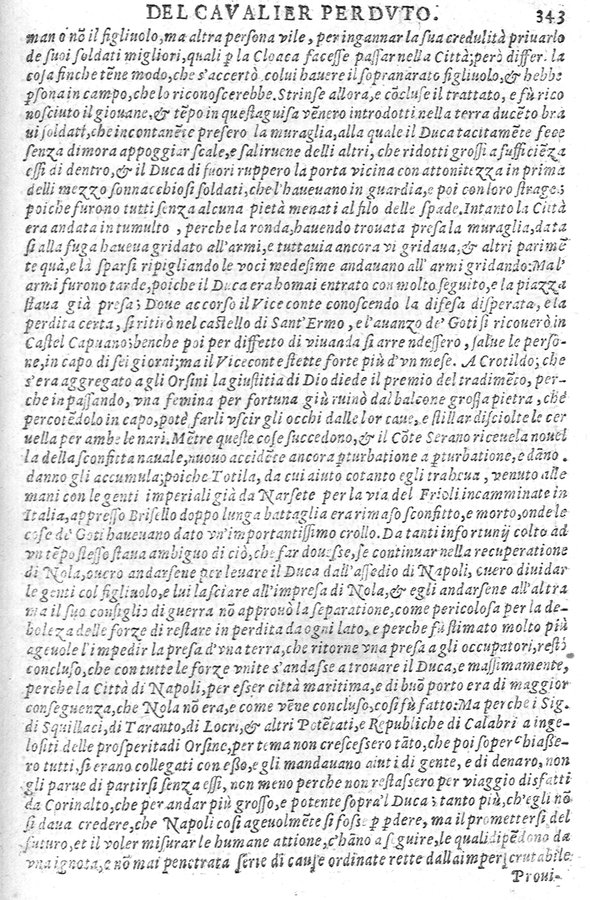 DEL CAVALIER PERDVTO. 343
man o nõ il figliuolo, ma altra persona vile, per ingannar la sua credulità priuarlo
de suoi soldati migliori, quali ꝑ la Cloaca facesse passar nella Città; però differì la
cosa finche tẽne modo, che s'accertò colui hauere il sopranarato figliuolo, & hebbe
ꝑsona in campo, che lo riconoscerebbe. Strinse allora, e cõcluse il trattato, e fù rico
nosciuto il giouane, & tẽpo in questa guisa vẽnero introdotti nella terra ducẽto bra
ui soldati, che incontanẽte presero la muraglia, alla quale il Duca tacitamẽte fece
senza dimora appoggiar scale, e saliruene delli altri, che ridotti grossi a sufficiẽza
essi di dentro, & il Duca di fuori ruppero la porta vicina con attonitezza in prima
delli mezzo sonnacchiosi soldati, che l'haueuano in guardia, e poi con loro strage;
poiche furono tutti senza alcuna pietà menati al filo delle spade. Intanto la Città
era andata in tumulto, perche la ronda, hauendo trouata presa la muraglia, data
si alla fuga haueua gridato all'armi, e tuttauia ancora vi gridaua, & altri parimẽ
te quà, e là sparsi ripigliando le voci medesime andauano all'armi gridando: Mal'
armi furono tarde, poiche il Duca era homai entrato con molto seguito, e la piazza
staua già presa; Doue accorso il Vice conte conoscendo la difesa disperata, e la
perdita certa, si ritirò nel castello di Sant'Ermo, e l'auanzo de' Goti si ricouerò in
Castel Capuano; benche poi per diffetto di viuanda si arrendessero, salue le perso-
ne, in capo di sei giorni; ma il Viceconte stette forte più d'vn mese. A Crotildo; che
s'era aggregato a gli Orsini la giustitia di Dio diede il premio del tradimẽto, per-
che in passando, vna femina per fortuna giù ruinò dal balcone grossa pietra, chè
percotẽdolo in capo, potè farli vscir gli occhi dalle lor caue, e stillar disciolte le cer
uella per ambe le nari. Mẽtre queste cose succedono, & il Cõte Serano riceue la nouel
la della sconfitta nauale, nuouo accidẽte ancora ꝑturbatione a ꝑturbatione, e dãno
danno gli accumula; poiche Totila, da cui aiuto cotanto egli traheua, venuto alle
mani con le genti imperiali già da Narsete per la via del Frioli incamminate in
Italia, appresso Brisello doppo lunga battaglia era rimaso sconfitto, e morto, onde le
cose de' Goti haueuano dato vn'importantissimo crollo. Da tanti infortunij colto ad
vn tẽpo stesso staua ambiguo di ciò, che far douesse, se continuar nella recuperatione
di Nola, ouero andarsene per leuare il Duca dall'assedio di Napoli, cuero diuidar
le genti col figliuolo, e lui lasciare all'impresa di Nola, & egli andarsene all'altra
ma il suo consiglio di guerra nõ approuò la separatione, come pericolosa per la de-
bolezza delle forze di restare in perdita da ogni lato, e perche fù stimato molto più
ageuole l'impedir la presa d'vna terra, che ritorne vna presa a gli occupatori, restò
concluso, che con tutte le forze vnite s'andasse a trouare il Duca, e massimamente,
perche la Città di Napoli, per esser città maritima, e di buõ porto era di maggior
conseguenza, che Nola nõ era, e come vẽne concluso, così fù fatto: Ma perche i Sig.
di Squillaci, di Taranto, di Locri, & altri Potẽtati, e Republiche di Calabri a inge-
lositi delle prosperità di Orsine, per tema non crescessero tãto, che poi soperchiasse-
ro tutti, si erano collegati con esso, e gli mandauano aiuti di gente, e di denaro, non
gli parue di partirsi senza essi, non meno perche non restassero per viaggio disfatti
da Corinalto, che per andar più grosso, e potente sopra'l Duca; tanto più, ch'egli nõ
si daua credere, che Napoli così ageuolmẽte si fosse ꝑ ꝑdere, ma il promettersi del
futuro, et il voler misurar le humane attione, c'hãno a seguire, le quali dipẽdono da
vna ignota, e nõ mai penetrata serie di cause ordinate rette dalla imperscrutabile
Proui-